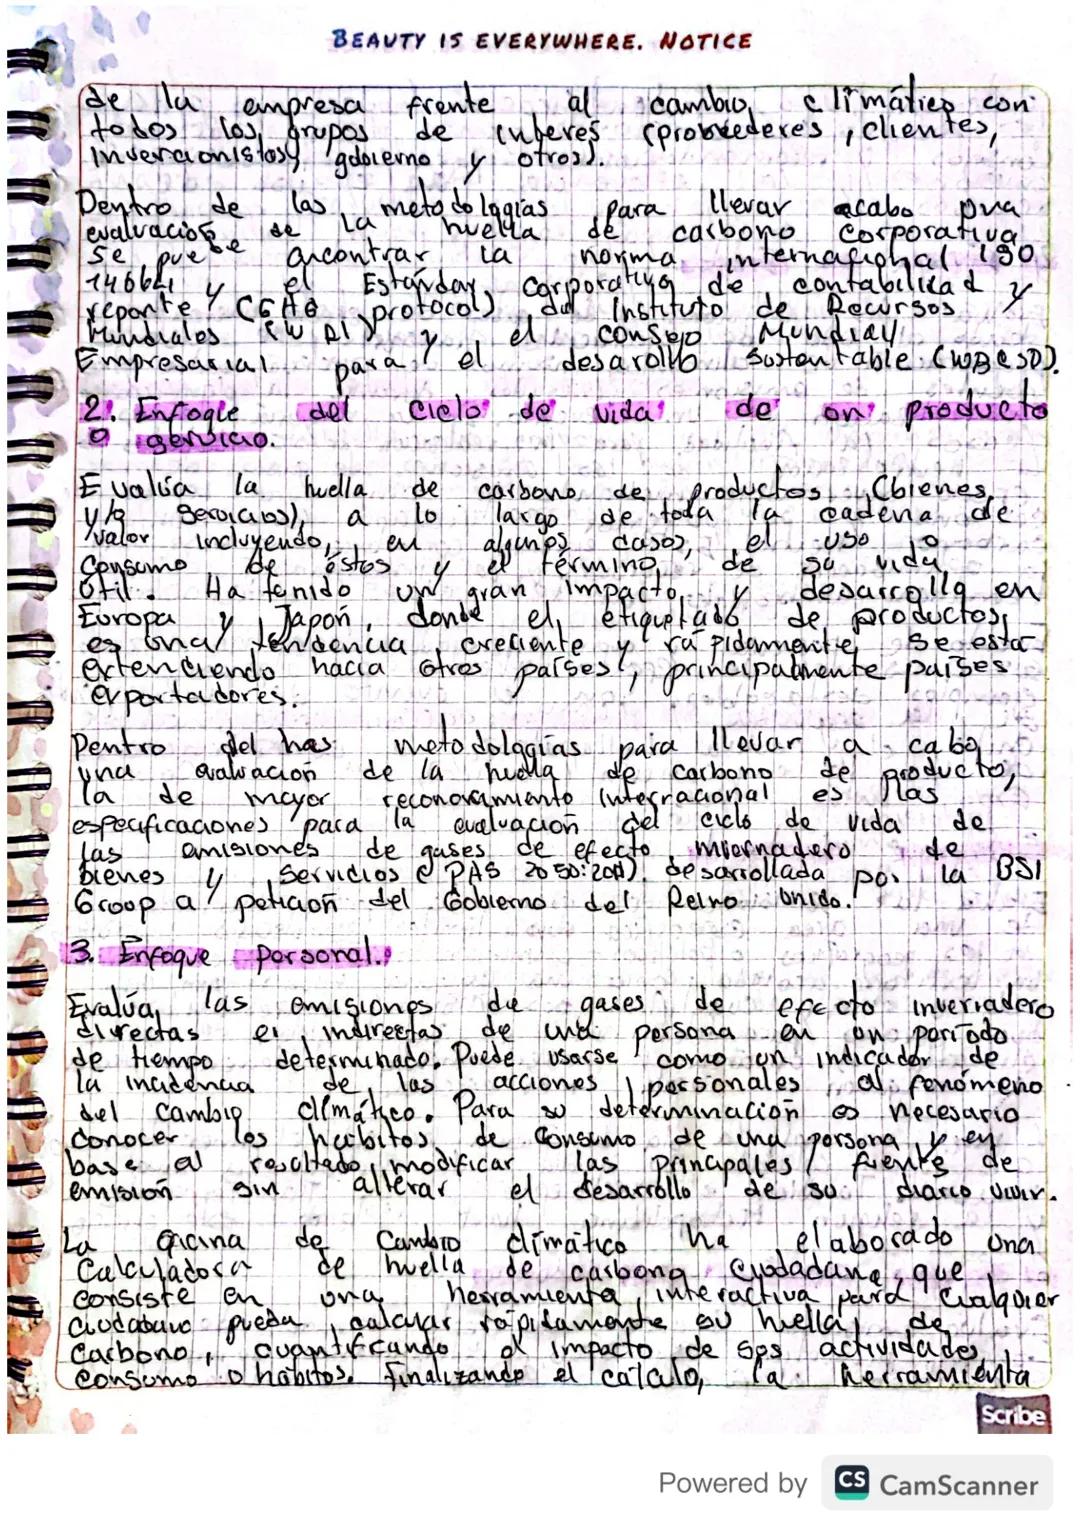 BEAUTY IS EVERYWHERE. NOTICE
de la empresa frente al cambio climático con
todos los grupos de interes (proveederes, clientes,
inversionistas, gobierno y otros).
Dentro de las metodologías para llevar acabo una
evaluación de la huella de carbono corporativa
se puede encontrar la norma internacional ISO
14064 y el Estándar Corporativo de contabilidad y
reporte (GHG protocol) del Instituto de Recursos
Mundiales (WRI) y el consejo Mundial
Empresarial para el desarollo Sostentable (WBCSD).
2. Enfoque del ciclo de vida de un producto
o servicio.
Evalúa la huella de carbono de productos (bienes
y/o servicios), a lo largo de toda la cadena de
valor incluyendo, en algunos casos, el uso o
consumo de éstos y el término de su vida
útil. Ha tenido un gran impacto y desarrollo en
Europa y Japón, donde el etiquetado de productos
es una tendencia creciente y rápidamente se está
extendiendo hacia otros países, principalmente países
exportadores.
Dentro del has metodologías para llevar a cabo
una evaluación de la huella de carbono de producto,
la de mayor reconocimiento integracional es las
especificaciones para la evaluación del ciclo de vida de
las emisiones de gases de efecto invernadero de
bienes y servicios (PAS 2050:2011) desarrollada por la BSI
Group a petición del Gobierno del Reino Unido.
3. Enfoque personal.
Evalúa las emisiones de gases de efecto invernadero
directas e indirectas de una persona en un período
de tiempo determinado. Puede usarse como un indicador de
la incidencia de las acciones personales al fenómeno
del cambio climático. Para su determinación es necesario
conocer los hábitos de consumo de una persona y en
base al resultado, modificar las principales fuentes de
emisión sin alterar el desarrollo de su diario vivir.
La oficina de Cambio climático ha elaborado una
Calculadora de huella de carbono Ciudadana, que
consiste en una herramienta interactiva para cualquier
ciudadano pueda calcular rápidamente su huella de
Carbono, cuantificando el impacto de sus actividades
consumo o hábitos. Finalizando el cálculo, la herramienta
Scribe
Powered by CS CamScanner